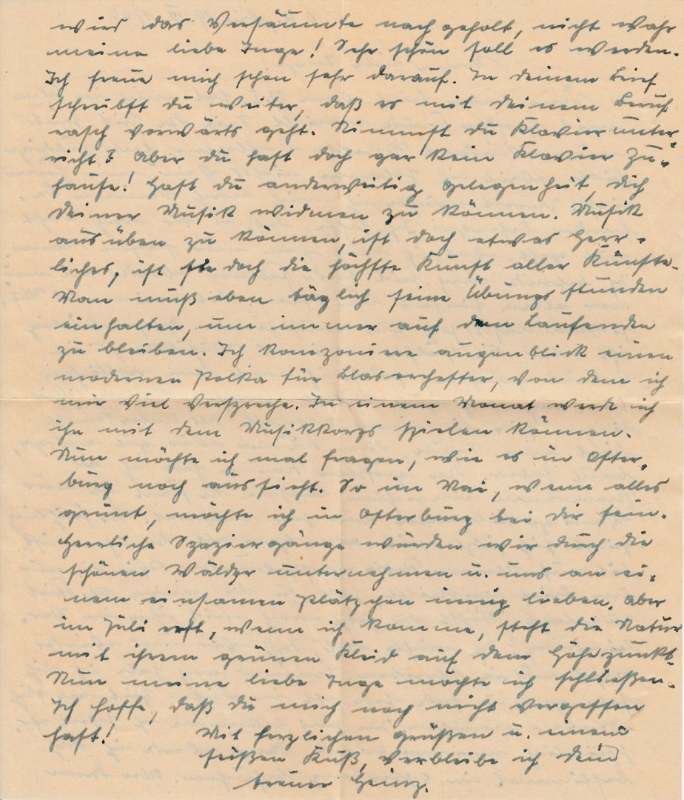 wird das Versäumte nachgeholt, nicht wahr
meine liebe Inge! Sehr schön soll es werden.
Ich freue mich schon sehr darauf. In deinem Brief
schreibst du weiter, daß es mit deinem Beruf
rasch vorwärts geht. Nimmst du Klavierunter-
richt? Aber du hast doch gar kein Klavier zu-
hause! Hast du anderweitig Gelegenheit, dich
deiner Musik widmen zu können. Musik
ausüben zu können, ist doch etwas Herr-
liches, ist sie doch die höchste Kunst aller Künste.
Man muß eben täglich seine Übungsstunden
einhalten, um immer auf dem Laufenden
zu bleiben. Ich komponiere augenblick einen
modernen Polka für Blasorchester, von dem ich
mir viel verspreche. In einem Monat werde ich
ihn mit dem Musikkorps spielen können.
Nun möchte ich mal fragen, wie es in Oster-
burg noch aussieht. So im Mai, wenn alles
grünt, möchte ich in Osterburg bei dir sein.
Herrliche Spaziergänge würden wir durch die
schönen Wälder unternehmen u. uns an ei-
nem einsamen Plätzchen innig lieben. Aber
im Juli erst, wenn ich komme, steht die Natur
mit ihrem grünen Kleid auf dem Höhepunkt.
Nun meine liebe Inge möchte ich schließen.
Ich hoffe, daß du mich noch nicht vergessen
hast!
Mit herzlichen Grüßen u. einem
süßen Kuß, verbleibe ich dein
treuer Heinz.